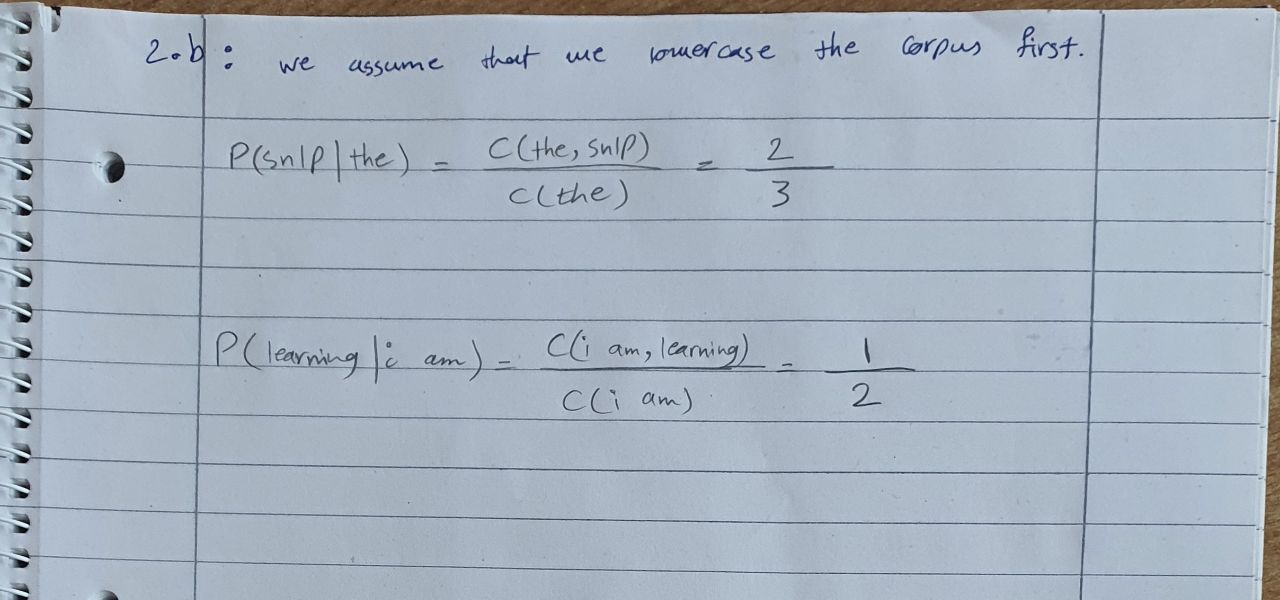 2.b: we assume that we lowercase the corpus first.
P(snlp|the) = C(the, snlp) / C(the) = 2 / 3
P(learning|i am) = C(i am, learning) / C(i am) = 1 / 2